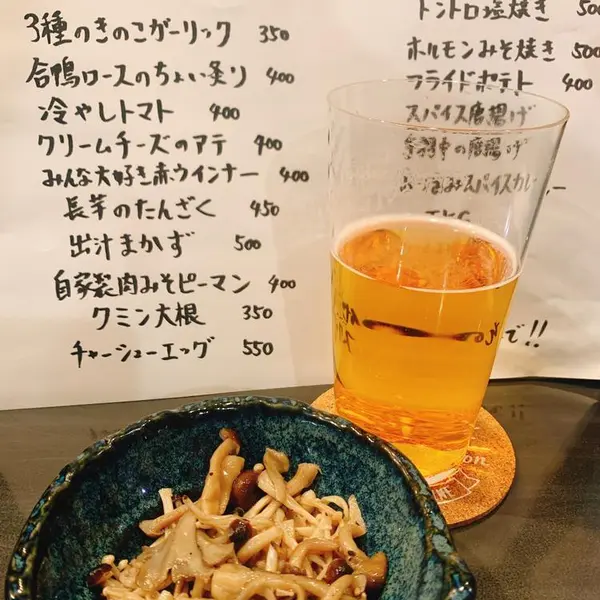 3種のきのこガーリック 350
合鴨ロースのちょい炙り 400
冷やしトマト 400
クリームチーズのアテ 400
みんな大好き赤ウインナー 400
長芋のたんざく 450
出汁まかず 500
自家製肉みそピーマン 400
クミン大根 350
チャーシューエッグ 550
トントロ塩焼き 500
ホルモンみそ焼き 500
フライドポテト 400
スパイス唐揚げ
の唐揚げ
スパイスカレー
TKG
で!!
on